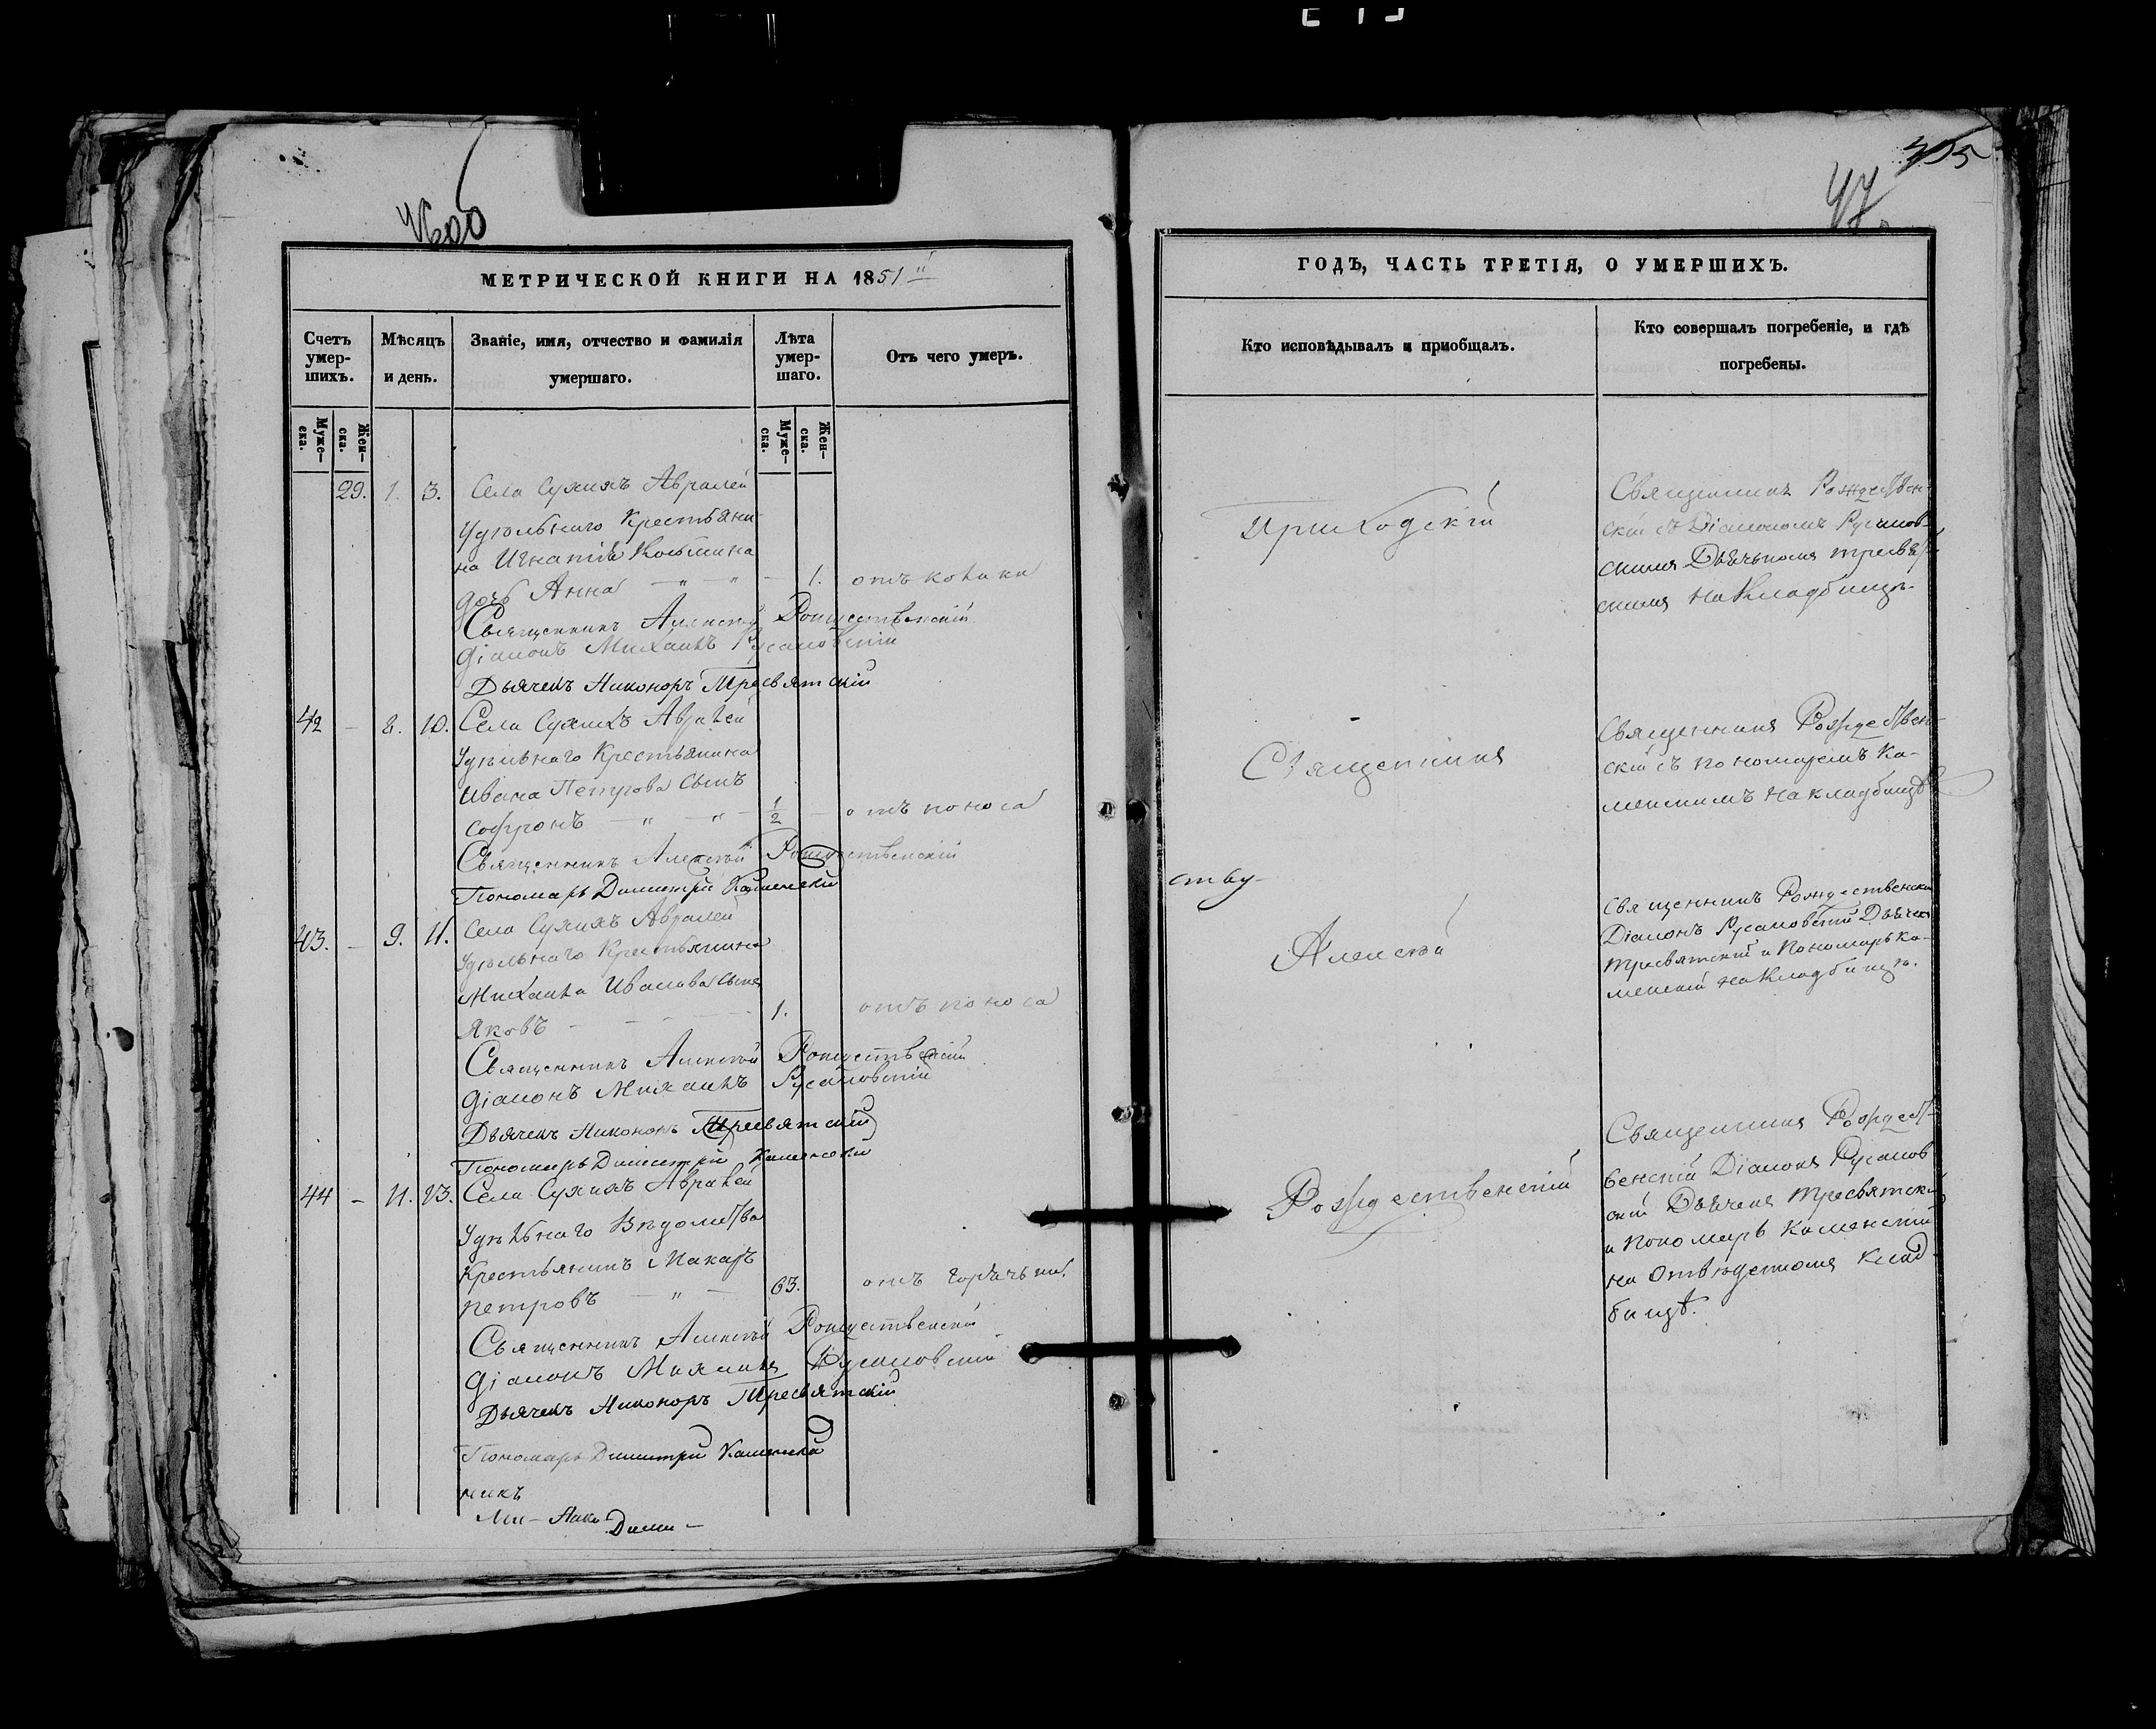 305
47
МЕТРИЧЕСКОЙ КНИГИ НА 1851й
Счетъ умер-шихъ.
Мѣсяцъ и день.
Званіе, имя, отчество и фамилія умершаго.
Лѣта умер-шаго.
Отъ чего умеръ.
Муже-ска.
Жен-ска.
Муже-ска.
Жен-ска.
29. 1. 3. Села Сухихъ Авралей
Удѣльнаго Крестьяни-
на Игнатія Козьмина
дочь Анна — " — " — 1. отъ
Священникъ Алексѣй Рождественскій
Діаконъ Михаилъ Русановскій
Дьячекъ Никоноръ Тресвятскій
42 — 8. 10. Села Сухихъ Авралей
Удѣльнаго Крестьянина
Ивана Петрова сынъ
Софронъ — " — " — 1/2 — отъ поноса
Священникъ Алексѣй Рождественскій
Пономарь Димитрій Каменскій
43. — 9. 11. Села Сухихъ Авралей
Удѣльнаго Крестьянина
Михаила Иванова сынъ
Яковъ — — — 1. отъ поноса
Священникъ Алексѣй Рождественскій
Діаконъ Михаилъ Русановскій
Дьячекъ Никоноръ Тресвятскій
Пономарь Димитрій Каменскій
44 — 11. 23. Села Сухихъ Авралей
Удѣльнаго Вѣдомства
Крестьянинъ Макаръ
Петровъ — " — 63. отъ горячки.
Священникъ Алексѣй Рождественскій
Діаконъ Михаилъ Русановскій
Дьячекъ Никоноръ Тресвятскій
Пономарь Димитрій Каменскій
никъ
Ми- Нико- Дими-
ГОДЪ, ЧАСТЬ ТРЕТІЯ, О УМЕРШИХЪ.
Кто исповѣдывалъ и пріобщалъ.
Кто совершалъ погребеніе, и гдѣ погребены.
Приходскій
Священникъ Рождествен-
скій съ Діакономъ Русанов-
скимъ Дьячькомъ Тресвят-
скимъ на кладбищѣ.
Священникъ
Священникъ Рождествен-
скій съ пономаремъ Ка-
менскимъ на кладбищѣ
ству-
Алексѣй
Священникъ Рождественскій
Діаконъ Русановскій Дьячекъ
Тресвятскій и Пономарь Ка-
менскій на кладбищѣ.
Рождественскій
Священникъ Рождест-
венскій Діаконъ Русанов
скій Дьячекъ Тресвятскій
и Пономарь Каменскій
на отведенномъ клад-
бищѣ.